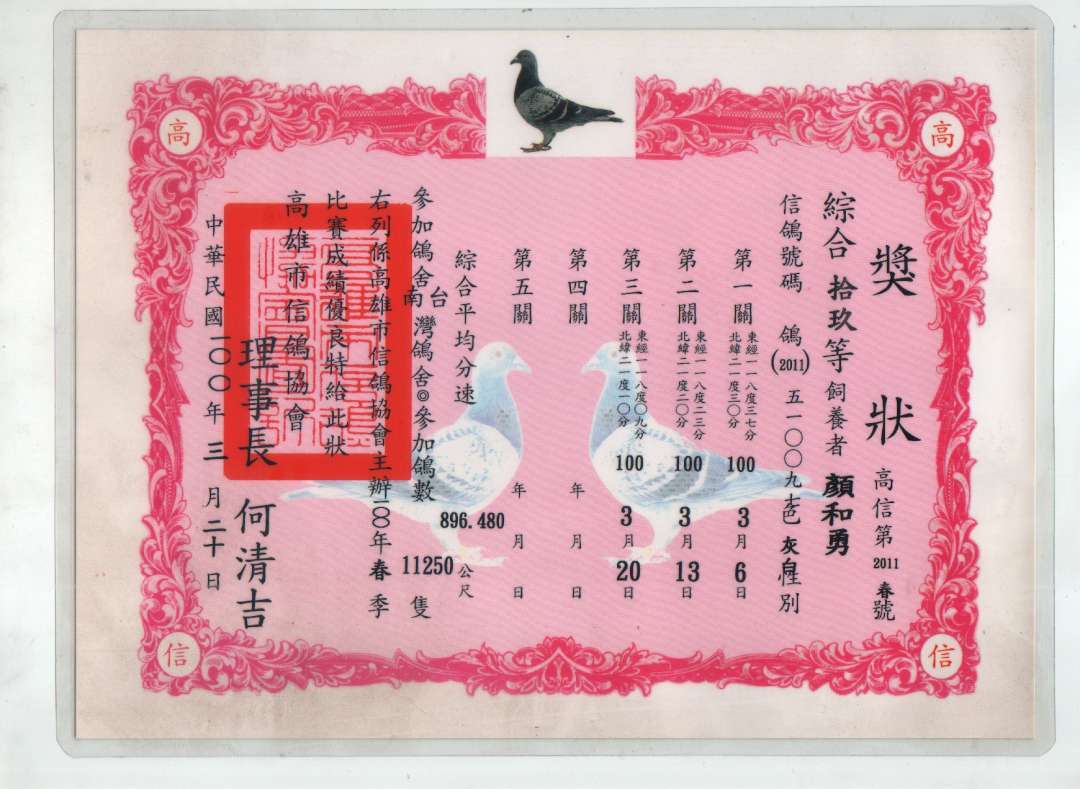 高
高
獎狀
高信第2011春號
綜合 拾玖等 飼養者 顏和勇
信鴿號碼 鴿(2011)五一〇〇九七 色 灰 性別
第一關 東經一一八度三七分 北緯二一度三〇分 100 3月6日
第二關 東經一一八度二三分 北緯二一度二〇分 100 3月13日
第三關 東經一一八度〇九分 北緯二一度一〇分 100 3月20日
第四關 年 月 日
第五關 年 月 日
綜合平均分速 896.480 公尺
參加鴿舍 台南 灣鴿舍◎參加鴿數 11250 隻
右列係高雄市信鴿協會主辦一〇〇年春季
比賽成績優良特給此狀
高雄市信鴿協會
理事長 何清吉
中華民國一〇〇年三月二十日
信
信